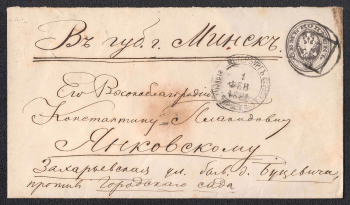 Въ губ. г. Минскъ.
1
ФЕВ
Его Высокоблагородію
Константину
Янковскому
Захарьевская ул. бав. д. Буцевича,
противъ Городского сада